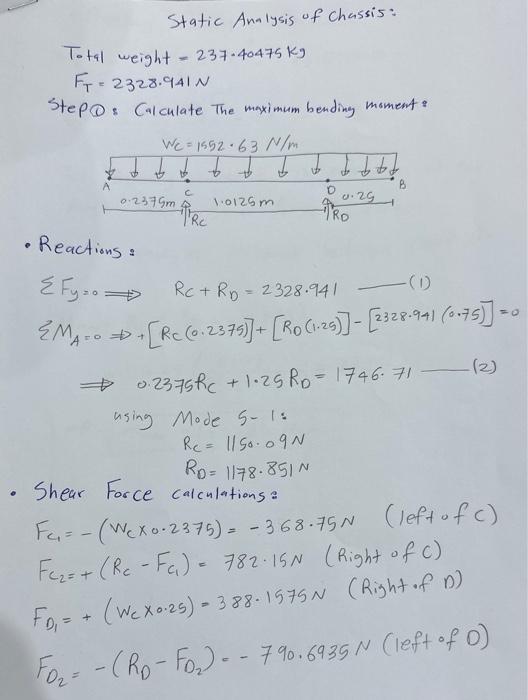 Static Analysis of Chassis:
Total weight = 237.40475 Kg
F_T = 2328.941 N
Step ① : Calculate The maximum bending moment :
W_C = 1552.63 N/m
A C D B
0.2375m 1.0125m 0.25
R_C R_D
• Reactions :
ΣFy=0 ⇒ R_C + R_D = 2328.941 — (1)
ΣM_A=0 ⇒ +[R_C(0.2375)]+[R_D(1.25)]-[2328.941(0.75)]=0
⇒ 0.2375R_C + 1.25R_D = 1746.71 — (2)
using Mode 5-1:
R_C = 1150.09N
R_D = 1178.851N
• Shear Force calculations :
F_C1 = -(W_C×0.2375) = -368.75N (left of C)
F_C2 = +(R_C - F_C1) = 782.15N (Right of C)
F_D1 = +(W_C×0.25) = 388.1575N (Right of D)
F_D2 = -(R_D - F_D2) = -790.6935N (left of D)